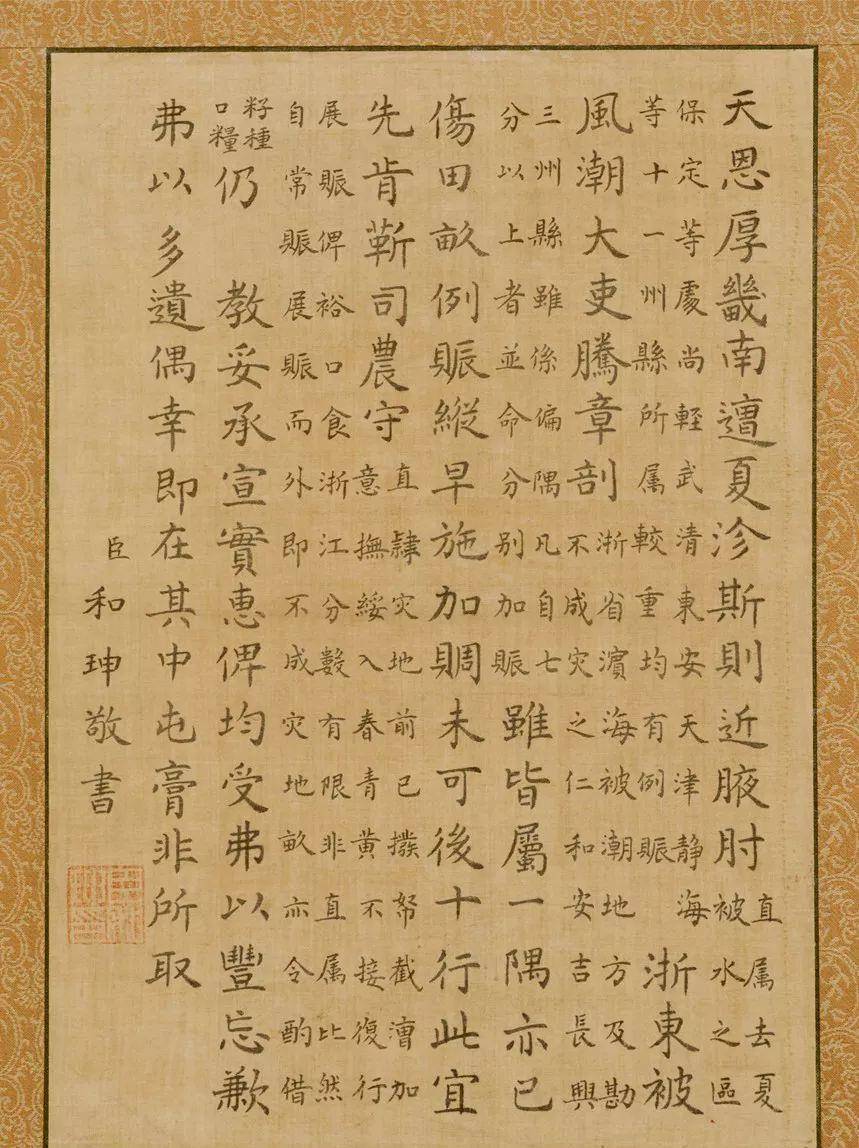 天恩厚畿南遭夏沴斯則近腋肘
直属去夏
被水之區
保定等處尚輕武清東安天津静海
等十一州縣所属較重均有例賑
浙東被
風潮大吏騰章剖
浙省濵海被潮地方及勘
不成灾之仁和安吉長興
三州縣雖係偏隅凡自七
分以上者並命分别加賑
雖皆屬一隅亦已
傷田畝例賑縱早施加賙未可後十行此宜
先肯靳司農守
直隷灾地前已撥帑截漕加
意撫綏入春青黄不接復行
展賑俾裕口食浙江分數有限非直属比然
自常賑展賑而外即不成灾地畝亦令酌借
籽種
口糧
仍教妥承宣實惠俾均受弗以豐忘歉
弗以多遺偶幸即在其中屯膏非所取
臣和珅敬書